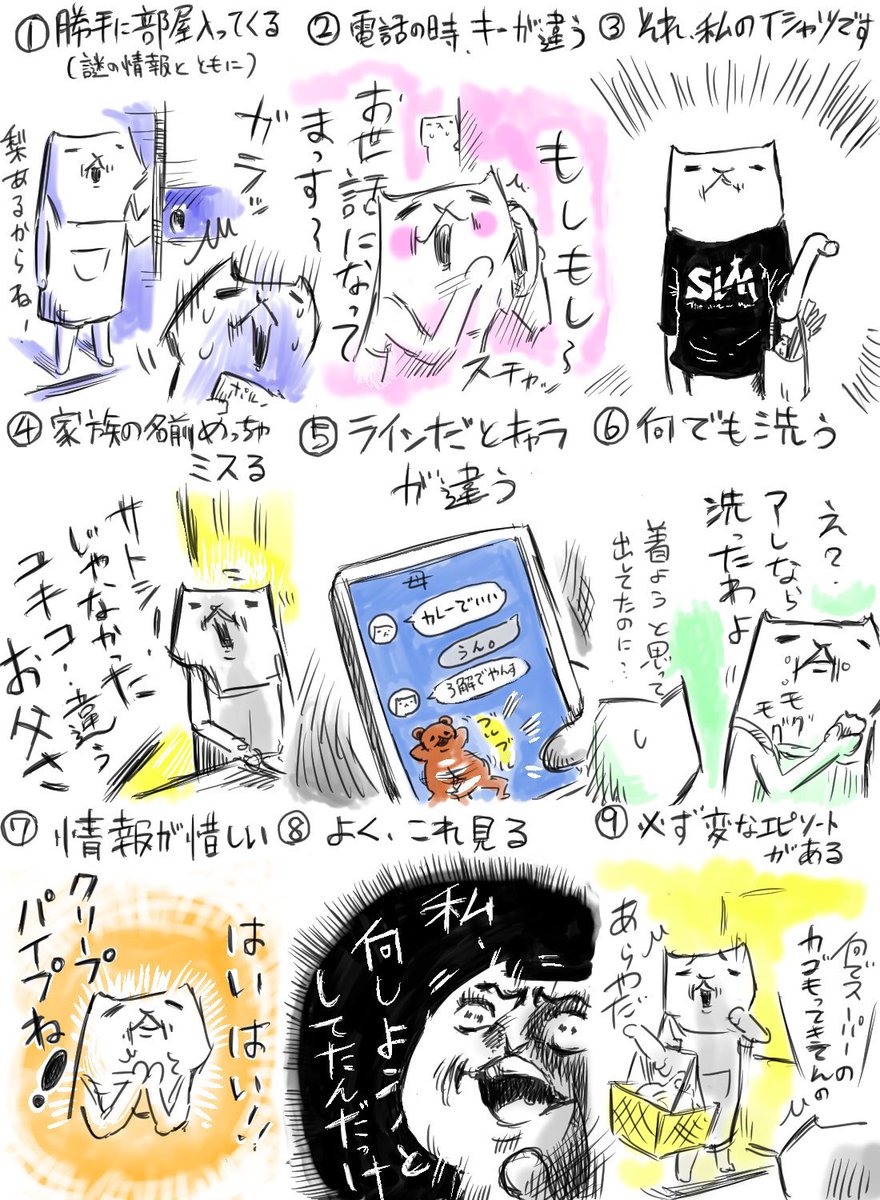 ①勝手に部屋入ってくる
(謎の情報とともに)
ガラッ
梨あるからねー
②電話の時、キーが違う
もしもし〜
お世話になって
まっす〜
スチャッ
③それ、私のTシャツです
SiM
④家族の名前めっちゃ
ミスる
サトシ
じゃなかった
ユキコ…違う
お父さ
⑤ラインだとキャラ
が違う
母
カレーでいい?
うん。
了解でやんす
⑥何でも洗う
え?
アレなら
洗ったわよ
着ようと思って
出してたのに…
モグ
モグ
⑦情報が惜しい
はいはい!!
クリープ
パイプね!
⑧よく、これ見る
私、
何しようと
してたんだっけ
⑨必ず変なエピソード
がある
何でスーパーの
カゴもってきてんの
あらやだ